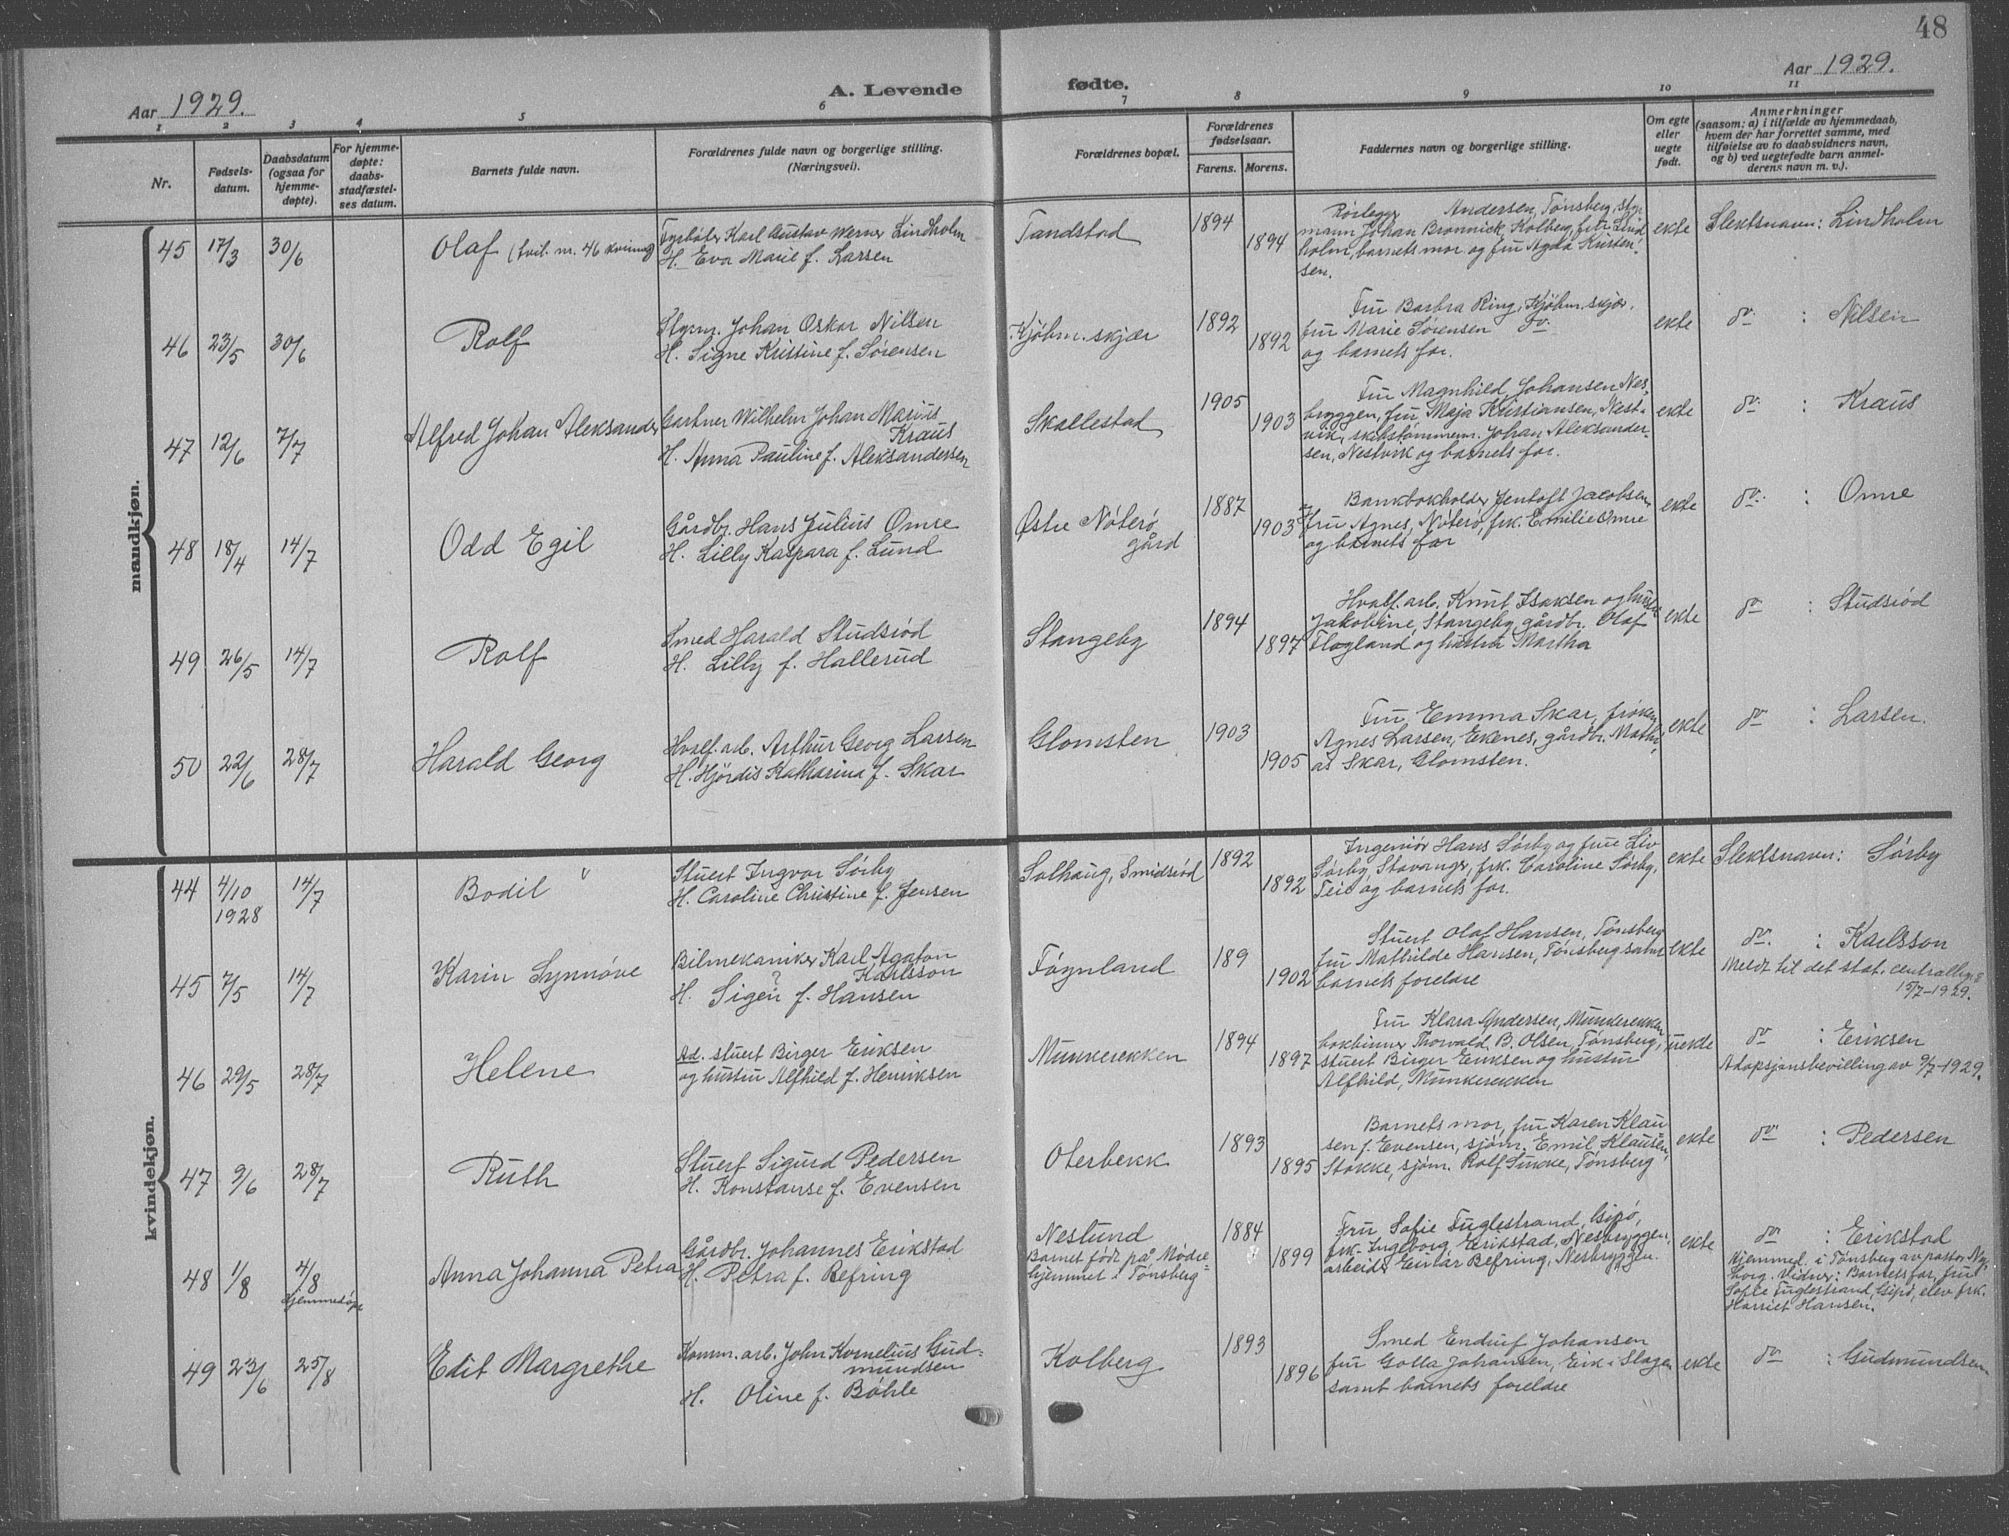 48
Aar 1929.
A. Levende
fødte.
Aar 1929.
1 2 3 4 5 6 7 8 9 10 11
Nr.
Fødsels-
datum.
Daabsdatum
(ogsaa for
hjemme-
døpte).
For hjemme-
døpte:
daabs-
stadfæstel-
ses datum.
Barnets fulde navn.
Forældrenes fulde navn og borgerlige stilling.
(Næringsvei).
Forældrenes bopæl.
Forældrenes
fødselsaar.
Farens. Morens.
Faddernes navn og borgerlige stilling.
Om egte
eller
uegte
født.
Anmerkninger
(saasom: a) i tilfælde av hjemmedaab,
hvem der har forrettet samme, med
tilføielse av to daabsvidners navn,
og b) ved uegtefødte barn anmel-
derens navn m. v.).
mandkjøn.
45 17/3 30/6 Olaf (tvil. nr. 46 kvinnek)
Fyrbøter Karl Gustav Werner Lindholm
H. Eva Marie f. Larsen
Tandstad
1894
1894
Rørlegger Andersen, Tønsberg, sty
mann Johan Brownick, Kolberg, fru Lind
holm, barnets mor og fru Agda Kristen
sen.
ekte
Slektsnavn: Lindholm
46 23/5 30/6 Rolf
Styrm. Johan Oskar Nilsen
H. Signe Kristine f. Sørensen
Kjøbm.skjær
1892
1892
Fru Barbra Ring, Kjøbm.skjær,
fru Marie Sørensen do.
og barnets far.
ekte
do : Nilsen
47 12/6 7/7 Alfred Johan Aleksander
Gartner Wilhelm Johan Marius
Kraus
H. Anna Pauline f. Aleksandersen
Skallestad
1905
1903
Fru Magnhild Johansen Nes-
bryggen, fru Maja Kristiansen, Nest-
vik, skibstømmerm. Johan Aleksander-
sen, Nestvik og barnets far.
ekte
do : Kraus
48 18/4 14/7 Odd Egil
Gårdbr. Hans Julius Omre
H. Lilly Kaspara f. Lund
Østre Nøterø
gård
1887
1903
Bankbokholder Jentoft Jacobsen
fru Agnes, Nøterø, frk. Emilie Omre
og barnets far
ekte
do : Omre
49 26/5 14/7 Rolf
Smed Harald Studsrød
H. Lilly f. Hallerud
Stangeby
1894
1897
Hvalf. arb. Knut Isaksen og hustru
Jakobine Stangeby, gårdbr. Olaf
Flogland og hustru Martha
ekte
do : Studsrød
50 22/6 28/7 Harald Georg
Hvalf. arb. Arthur Georg Larsen
H. Hjørdis Katharina f. Skar
Glomsten
1903
1905
Fru Emma Skar, frøken
Agnes Larsen, Ekenes, gårdbr. Mathi
as Skar, Glomsten.
ekte
do : Larsen.
kvindekjøn.
44 4/10 14/7 Bodil
1928
Stuert Ingvar Sørby
H. Caroline Christine f. Jensen
Solhaug, Smidsrød
1892
1892
Ingeniør Hans Sørby og frue Liv
Sørby, Stavanger, frk. Caroline Sørby,
Teie og barnets far.
ekte
Slektsnavn: Sørby
45 7/5 14/7 Karin Synnøve
Bilmekaniker Karl Agaton
Karlsson
H. Sigen ? f. Hansen
Føynland
189
1902
Stuert Olaf Hansen, Tønsberg
fru Mathilde Hansen, Tønsberg samt
barnets foreldre
ekte
do. : Karlsson
Meldt til det stat. centralby.
15/7-1929.
46 29/5 28/7 Helene
Ad. stuert Birger Eriksen
og hustru Alfhild f. Henriksen
Munkerekken
1894
1897
Fru Klara Andersen, Munkerekken
bokbinner Thorvald B. Olsen, Tønsberg,
stuert Birger Eriksen og hustru
Alfhild, Munkerekken
uekte
do : Eriksen
Adopsjonsbevilling av 9/7-1929.
47 9/6 28/7 Ruth
Stuert Sigurd Pedersen
H. Konstanse f. Evensen
Oterbekk
1893
1895
Barnets mor, fru Karen Klau
sen f. Evensen, sjøm. Emil Klausen,
Stokke, sjøm. Rolf Simke, Tønsberg
ekte
do : Pedersen
48 1/8 4/8 Anna Johanna Petra
hjemmedøpt
Gårdbr. Johannes Erikstad
H. Petra f. Refring
Neslund
Barnet født på Mødre-
hjemmet i Tønsberg
1884
1899
Fru Sofie Fuglestrand, Gipø,
frk. Ingeborg Erikstad, Nesbryggen,
arbeider Einar Refring, Nesbryggen.
ekte
do : Erikstad
Hjemmed. i Tønsberg av pastor Ny-
borg. Vidner: Barnets far, fru
Sofie Fuglestrand, Gipø, elev frk.
Harriet Hansen.
49 23/6 25/8 Edit Margrethe
Komm. arb. John Kornelius Gud-
mundsen
H. Oline f. Bøhle
Kolberg
1893
1896
Smed Endruf Johansen
fru Gotta Johansen, Eik i Slagen
samt barnets foreldre
ekte
do : Gudmundsen